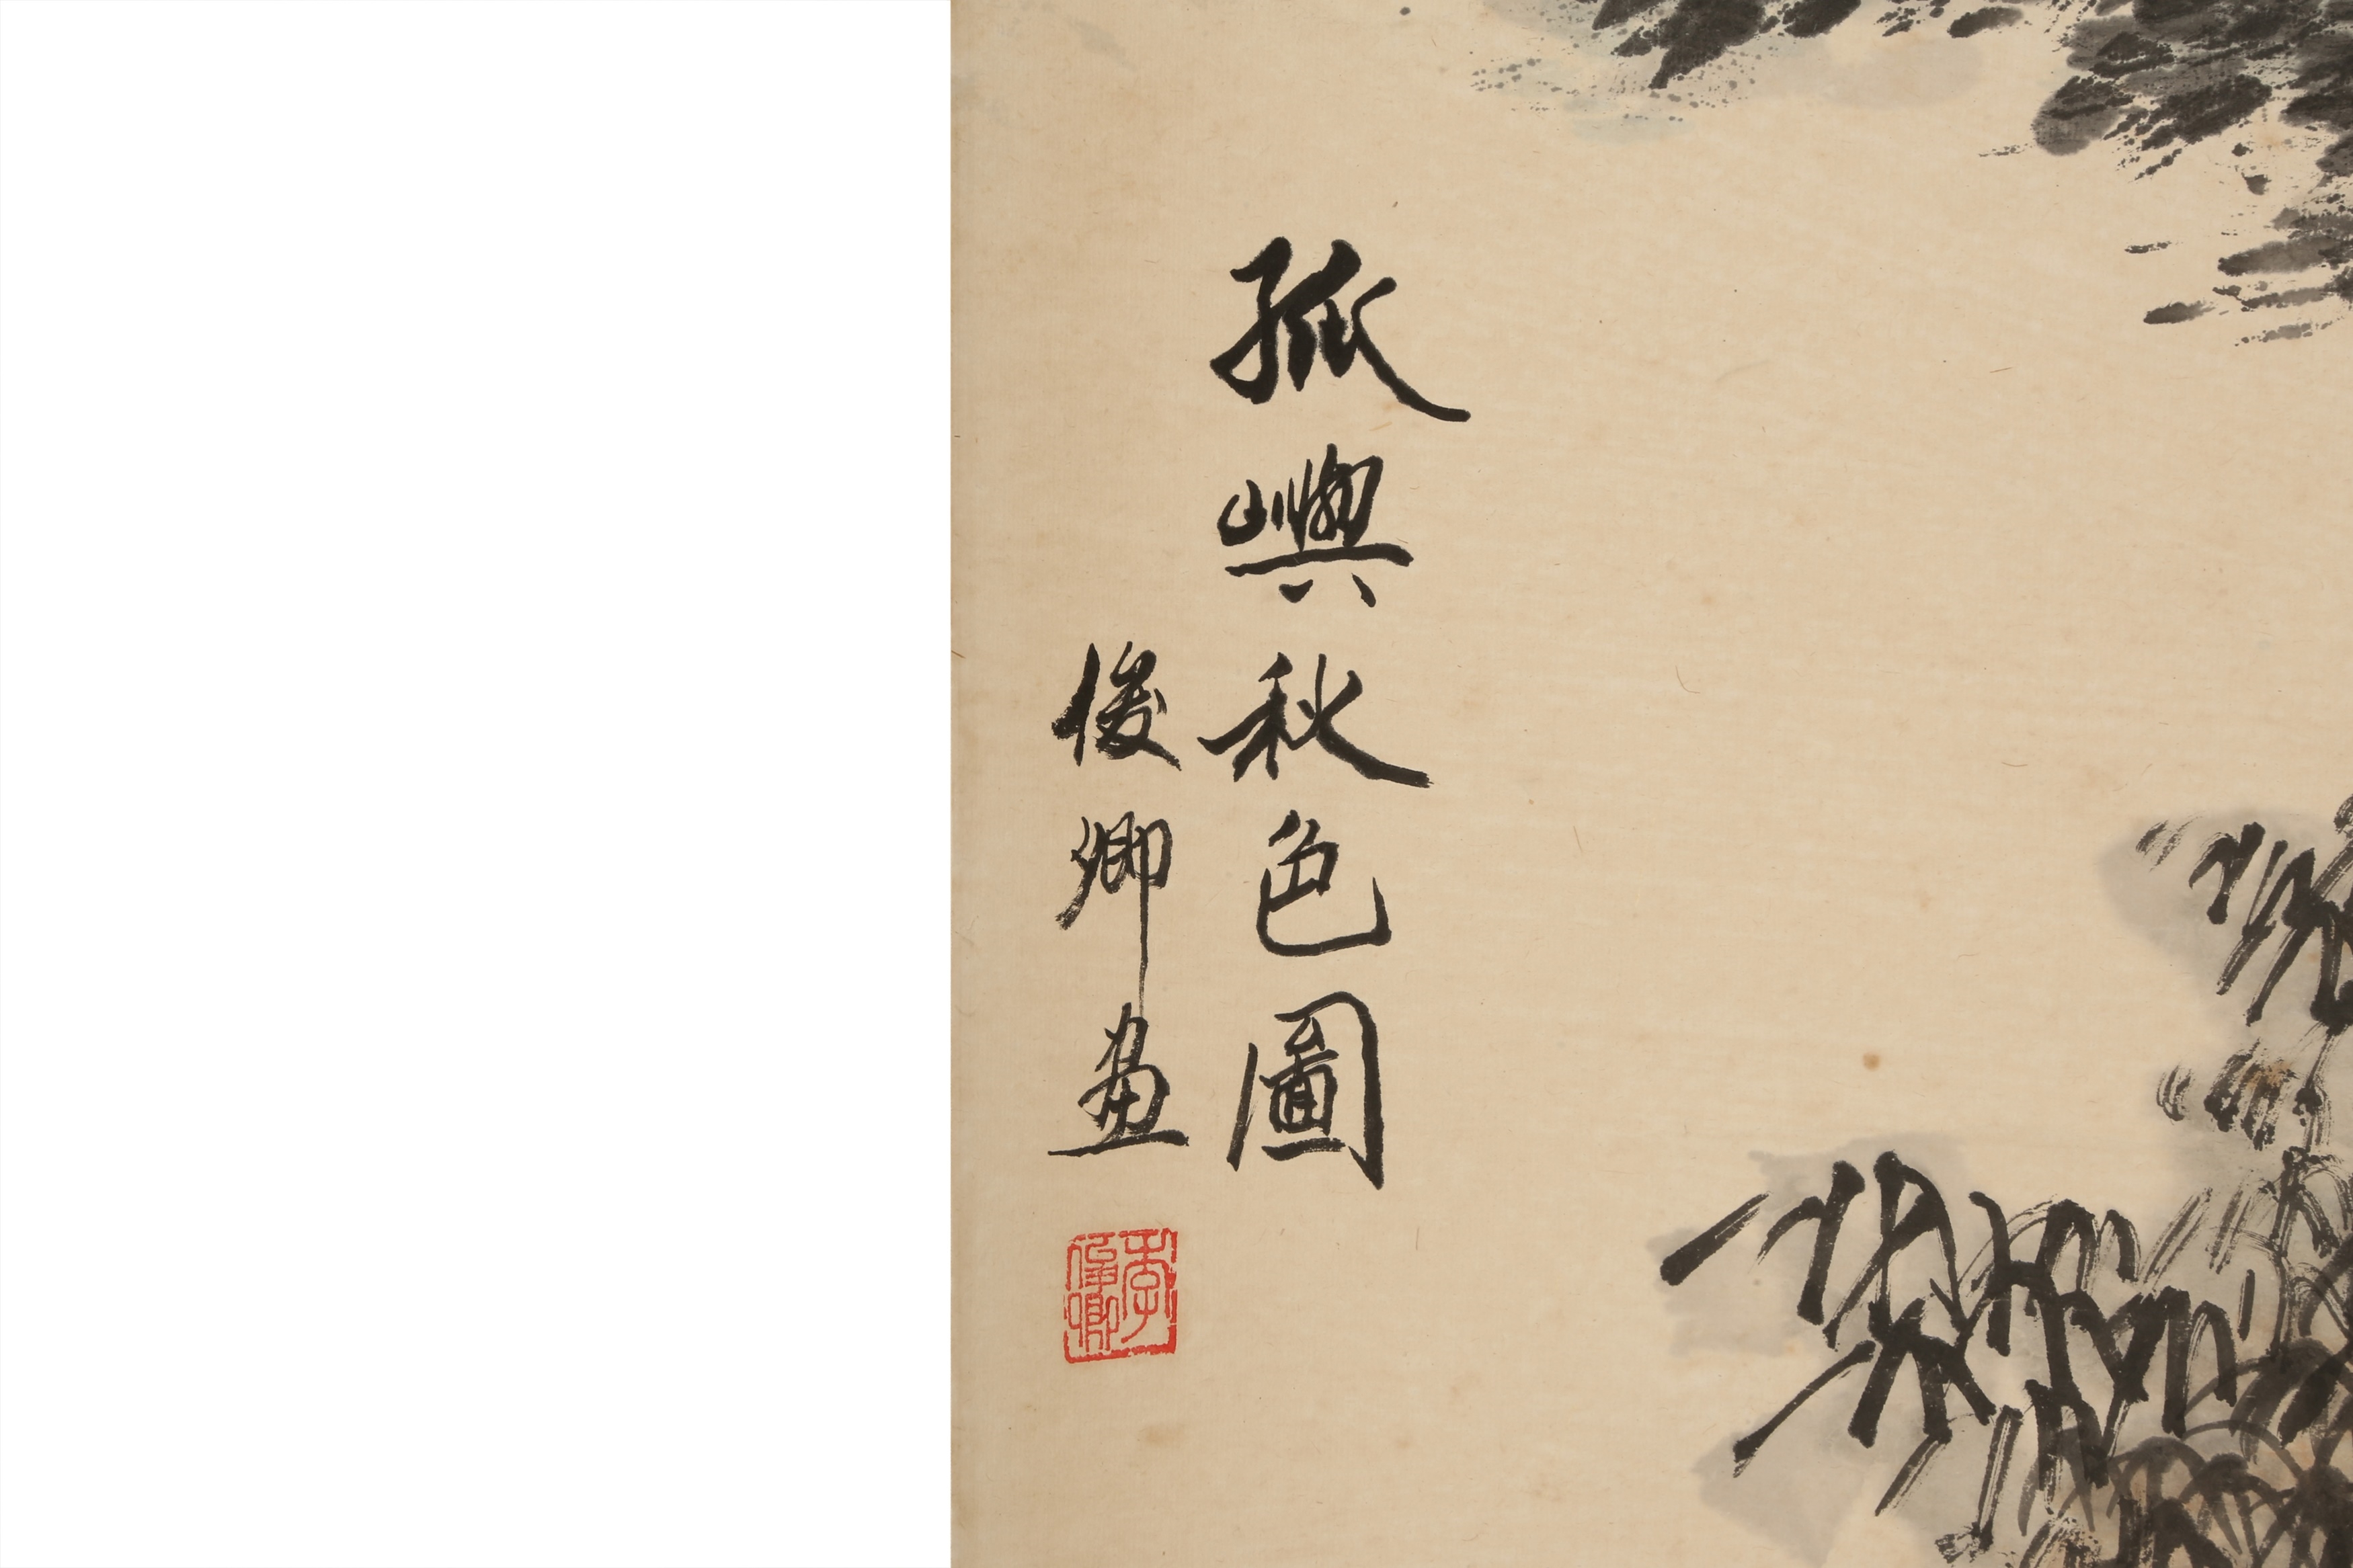 孤嶼秋色圖
俊卿畫
李俊卿